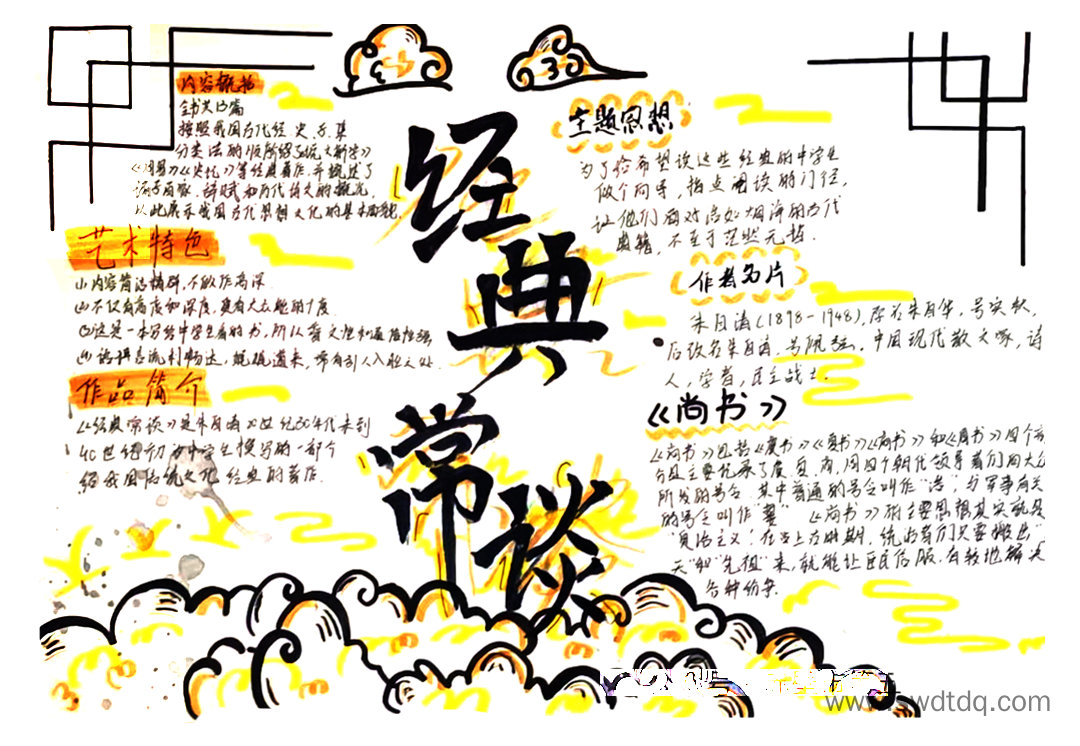 经典常谈
内容概括
全书共13篇
按照我国古代经、史、子、集
分类法的顺序介绍了《说文解字》
《周易》《史记》等经典著作,并概述了
诸子百家、辞赋和历代诗文的概况,
以此展示我国古代思想文化的基本面貌.
艺术特色
(1)内容简洁精辟,不做作高深
(2)不仅有高度和深度,更有大众化的广度
(3)这是一本写给中学生看的书,所以有文化和通俗性强
(4)语拼言流利畅达,娓娓道来,常有引人入胜之处.
作品简介
《经典常谈》是朱自清20世纪30年代末到
40世纪初为中学生撰写的一部介
绍我国传统文化经典的著作.
主题思想
为了给希望读这些经典的中学生
做个向导,指点阅读的门径,
让他们面对浩如烟海的古代
典籍,不至于茫然无措.
作者名片
朱自清(1898-1948),原名朱自华,号实秋,
后改名朱自清,号佩弦.中国现代散文家,诗
人,学者,民主战士.
《尚书》
《尚书》包括《虞书》《夏书》《商书》和《周书》四个部
分且主要记录了虞、夏、商、周四个朝代领导者们向大众
所发的号令.其中普通的号令叫作"诰",与军事有关
的号令叫作"誓" 《尚书》的主要思想其实就是
"民治主义".在当上古时期,统治者们只要搬出"
天"和"先祖"来,就能让臣民信服.有较地解决
各种纷杂.
www.swdtdq.com